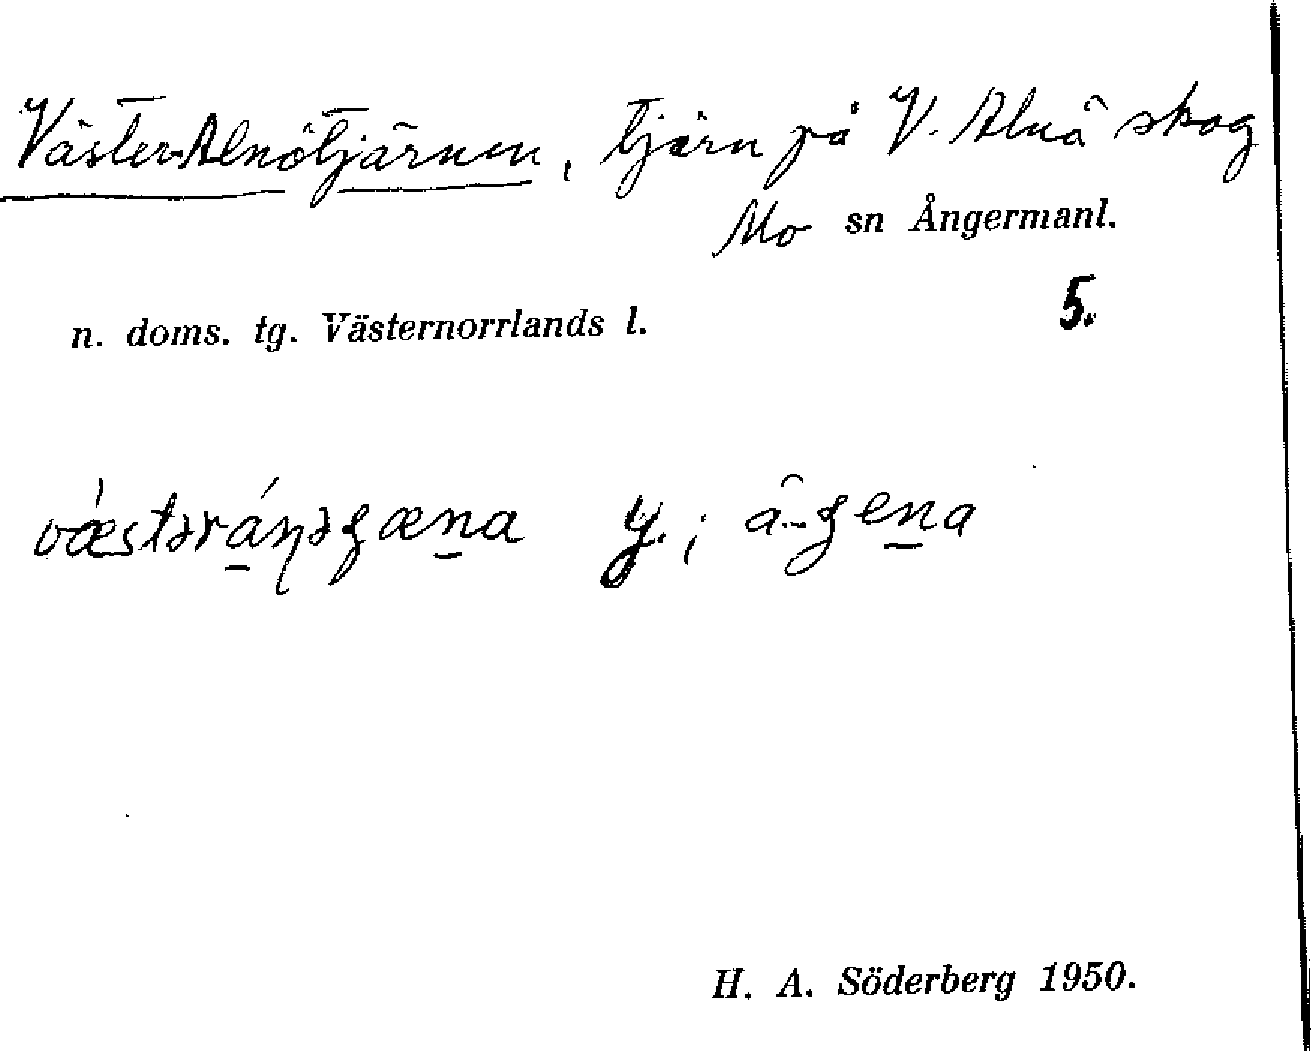 Väster-Alnötjärnen, tjärn på V. Alnö skog
Mo sn Ångermanl.
n. doms. tg. Västernorrlands l. 5.
y. ;
H. A. Söderberg 1950.